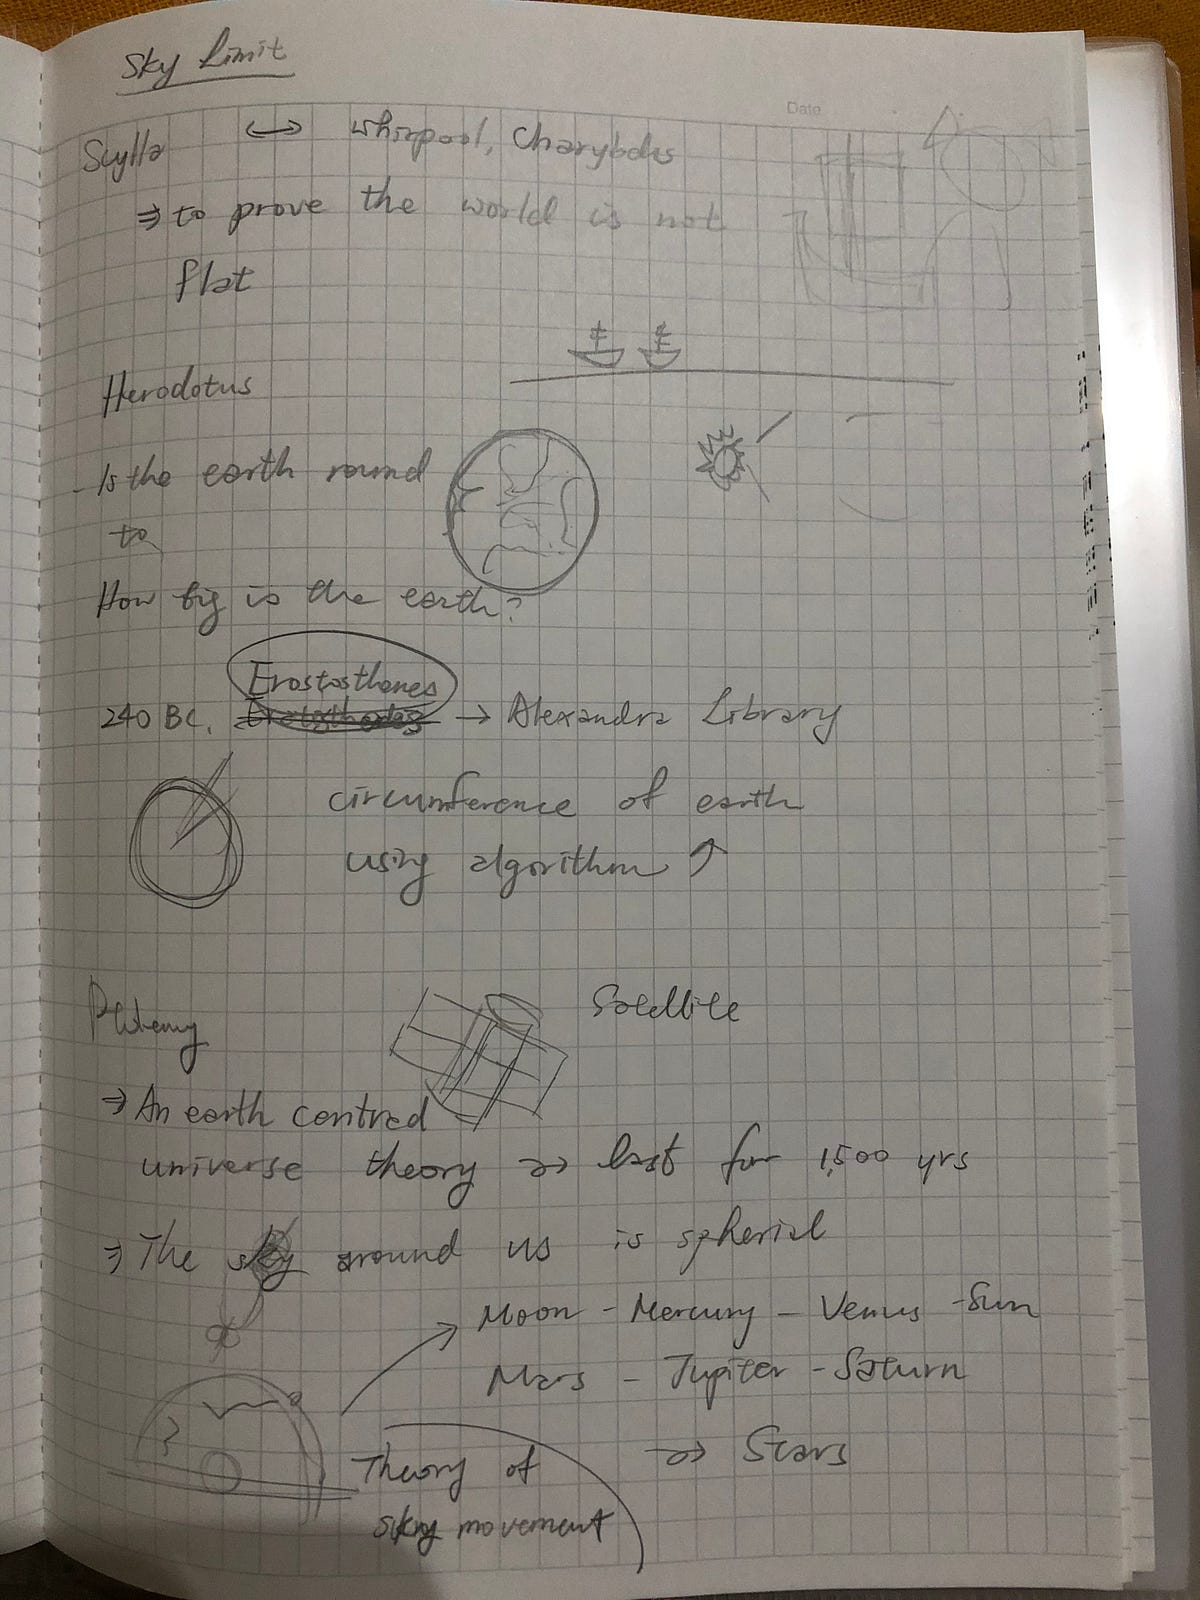 Sky Limit
Date
Scylla ↔ whirpool, Charybdis
⇒ to prove the world is not
flat
Herodotus
- Is the earth round
to
How big is the earth?
Erostosthenes
240 BC. → Alexandra Library
circumference of earth
using algorithm
Ptlemy
Satellite
⇒ An earth centred
universe theory ⇒ last for 1,500 yrs
⇒ The sky around us is spherial
Moon - Mercury - Venus - Sun
Mars - Jupiter - Saturn
Theory of ⇒ Stars
sky movement